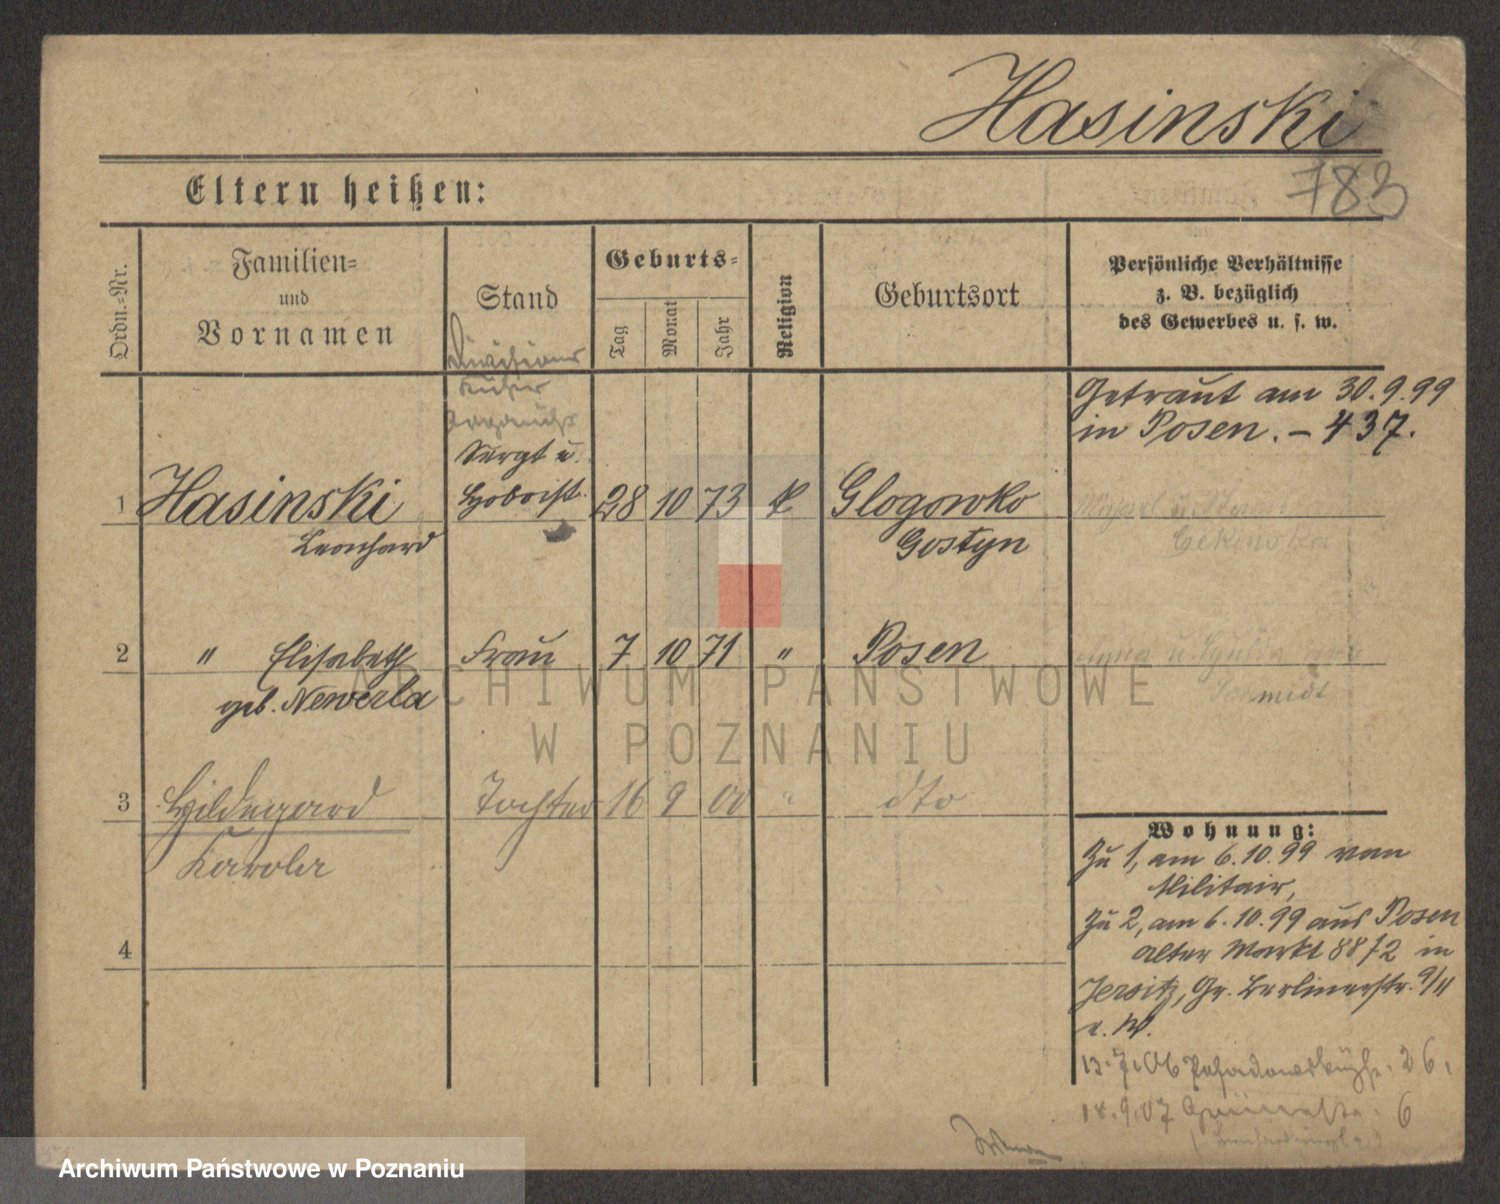 Hasinski
783
Eltern heißen:
Ordn.-Nr.
Familien-
und
Vornamen
Stand
Geburts-
Tag
Monat
Jahr
Religion
Geburtsort
Persönliche Verhältnisse
z. B. bezüglich
des Gewerbes u. s. w.
Divisions
Küster
Getraut am 30.9.99
in Posen. – 437.
1 Hasinski Sergt u. Hoboist. 28 10 73 k Glogowko
Leonhard Gostyn
2 " Elisabeth Frau 7 10 71 " Posen
geb. Newerla
Schmidt
3 Hildegard Tochter 16 9 00 " dto
Karola
4
Wohnung:
Zu 1, am 6.10.99 vom
Militair,
Zu 2, am 6.10.99 aus Posen
Alter Markt 88 72 in
Jersitz, Gr. Berlinerstr. 9/11
e. W.
13.7.06 26.
18.9.07 6
ARCHIWUM PAŃSTWOWE
W POZNANIU
Archiwum Państwowe w Poznaniu